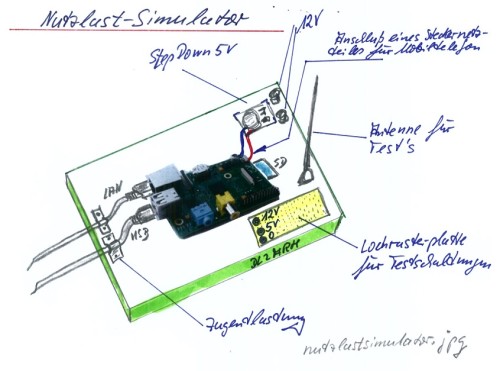 Nutzlast-Simulator
12V
StepDown 5V
Anschluß eines Steckernetz-
teiles für Mobiltelefon
Antenne für
Test's
SD
LAN
USB
12V
5V
0
DL2MRH
Lochraster-platte
für Testschaltungen
Zugentlastung
nutzlastsimulator.jpg